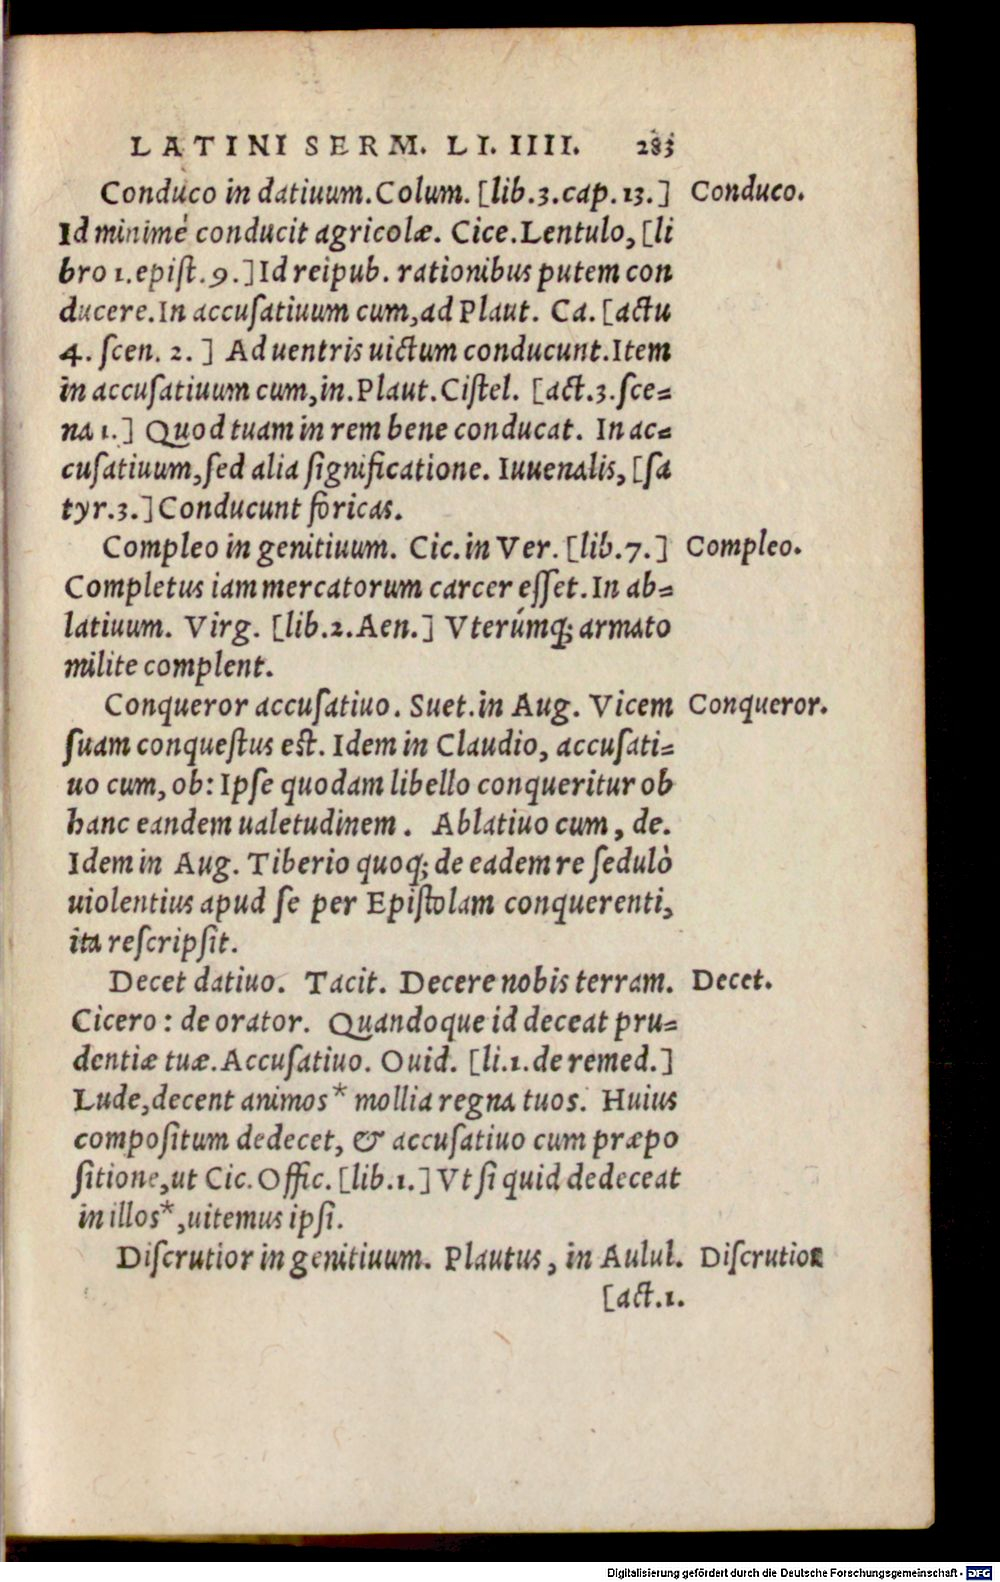 LATINI SERM. LI. IIII. 285
Conduco in datiuum. Colum. [lib.3.cap.13.] Conduco.
Id minimè conducit agricolæ. Cice. Lentulo, [li
bro 1. epiſt. 9.] Id reipub. rationibus putem con
ducere. In accuſatiuum cum, ad Plaut. Ca. [actu
4. ſcen. 2.] Ad uentris uictum conducunt. Item
in accuſatiuum cum, in. Plaut. Ciſtel. [act.3. ſce=
na 1.] Quod tuam in rem bene conducat. In ac=
cuſatiuum, ſed alia ſignificatione. Iuuenalis, [ſa
tyr.3.] Conducunt foricas.
Compleo in genitiuum. Cic. in Ver. [lib.7.] Compleo.
Completus iam mercatorum carcer eſſet. In ab=
latiuum. Virg. [lib.2. Aen.] Vterúmq; armato
milite complent.
Conqueror accuſatiuo. Suet. in Aug. Vicem Conqueror.
ſuam conqueſtus eſt. Idem in Claudio, accuſati=
uo cum, ob: Ipſe quodam libello conqueritur ob
hanc eandem ualetudinem. Ablatiuo cum, de.
Idem in Aug. Tiberio quoq; de eadem re ſedulò
uiolentius apud ſe per Epiſtolam conquerenti,
ita reſcripſit.
Decet datiuo. Tacit. Decere nobis terram. Decet.
Cicero: de orator. Quandoque id deceat pru=
dentiæ tuæ. Accuſatiuo. Ouid. [li.1. de remed.]
Lude, decent animos* mollia regna tuos. Huius
compoſitum dedecet, & accuſatiuo cum præpo
ſitione, ut Cic. Offic. [lib.1.] Vt ſi quid dedeceat
in illos*, uitemus ipſi.
Diſcrutior in genitiuum. Plautus, in Aulul. Diſcrutior
[act.1.
Digitalisierung gefördert durch die Deutsche Forschungsgemeinschaft - DFG